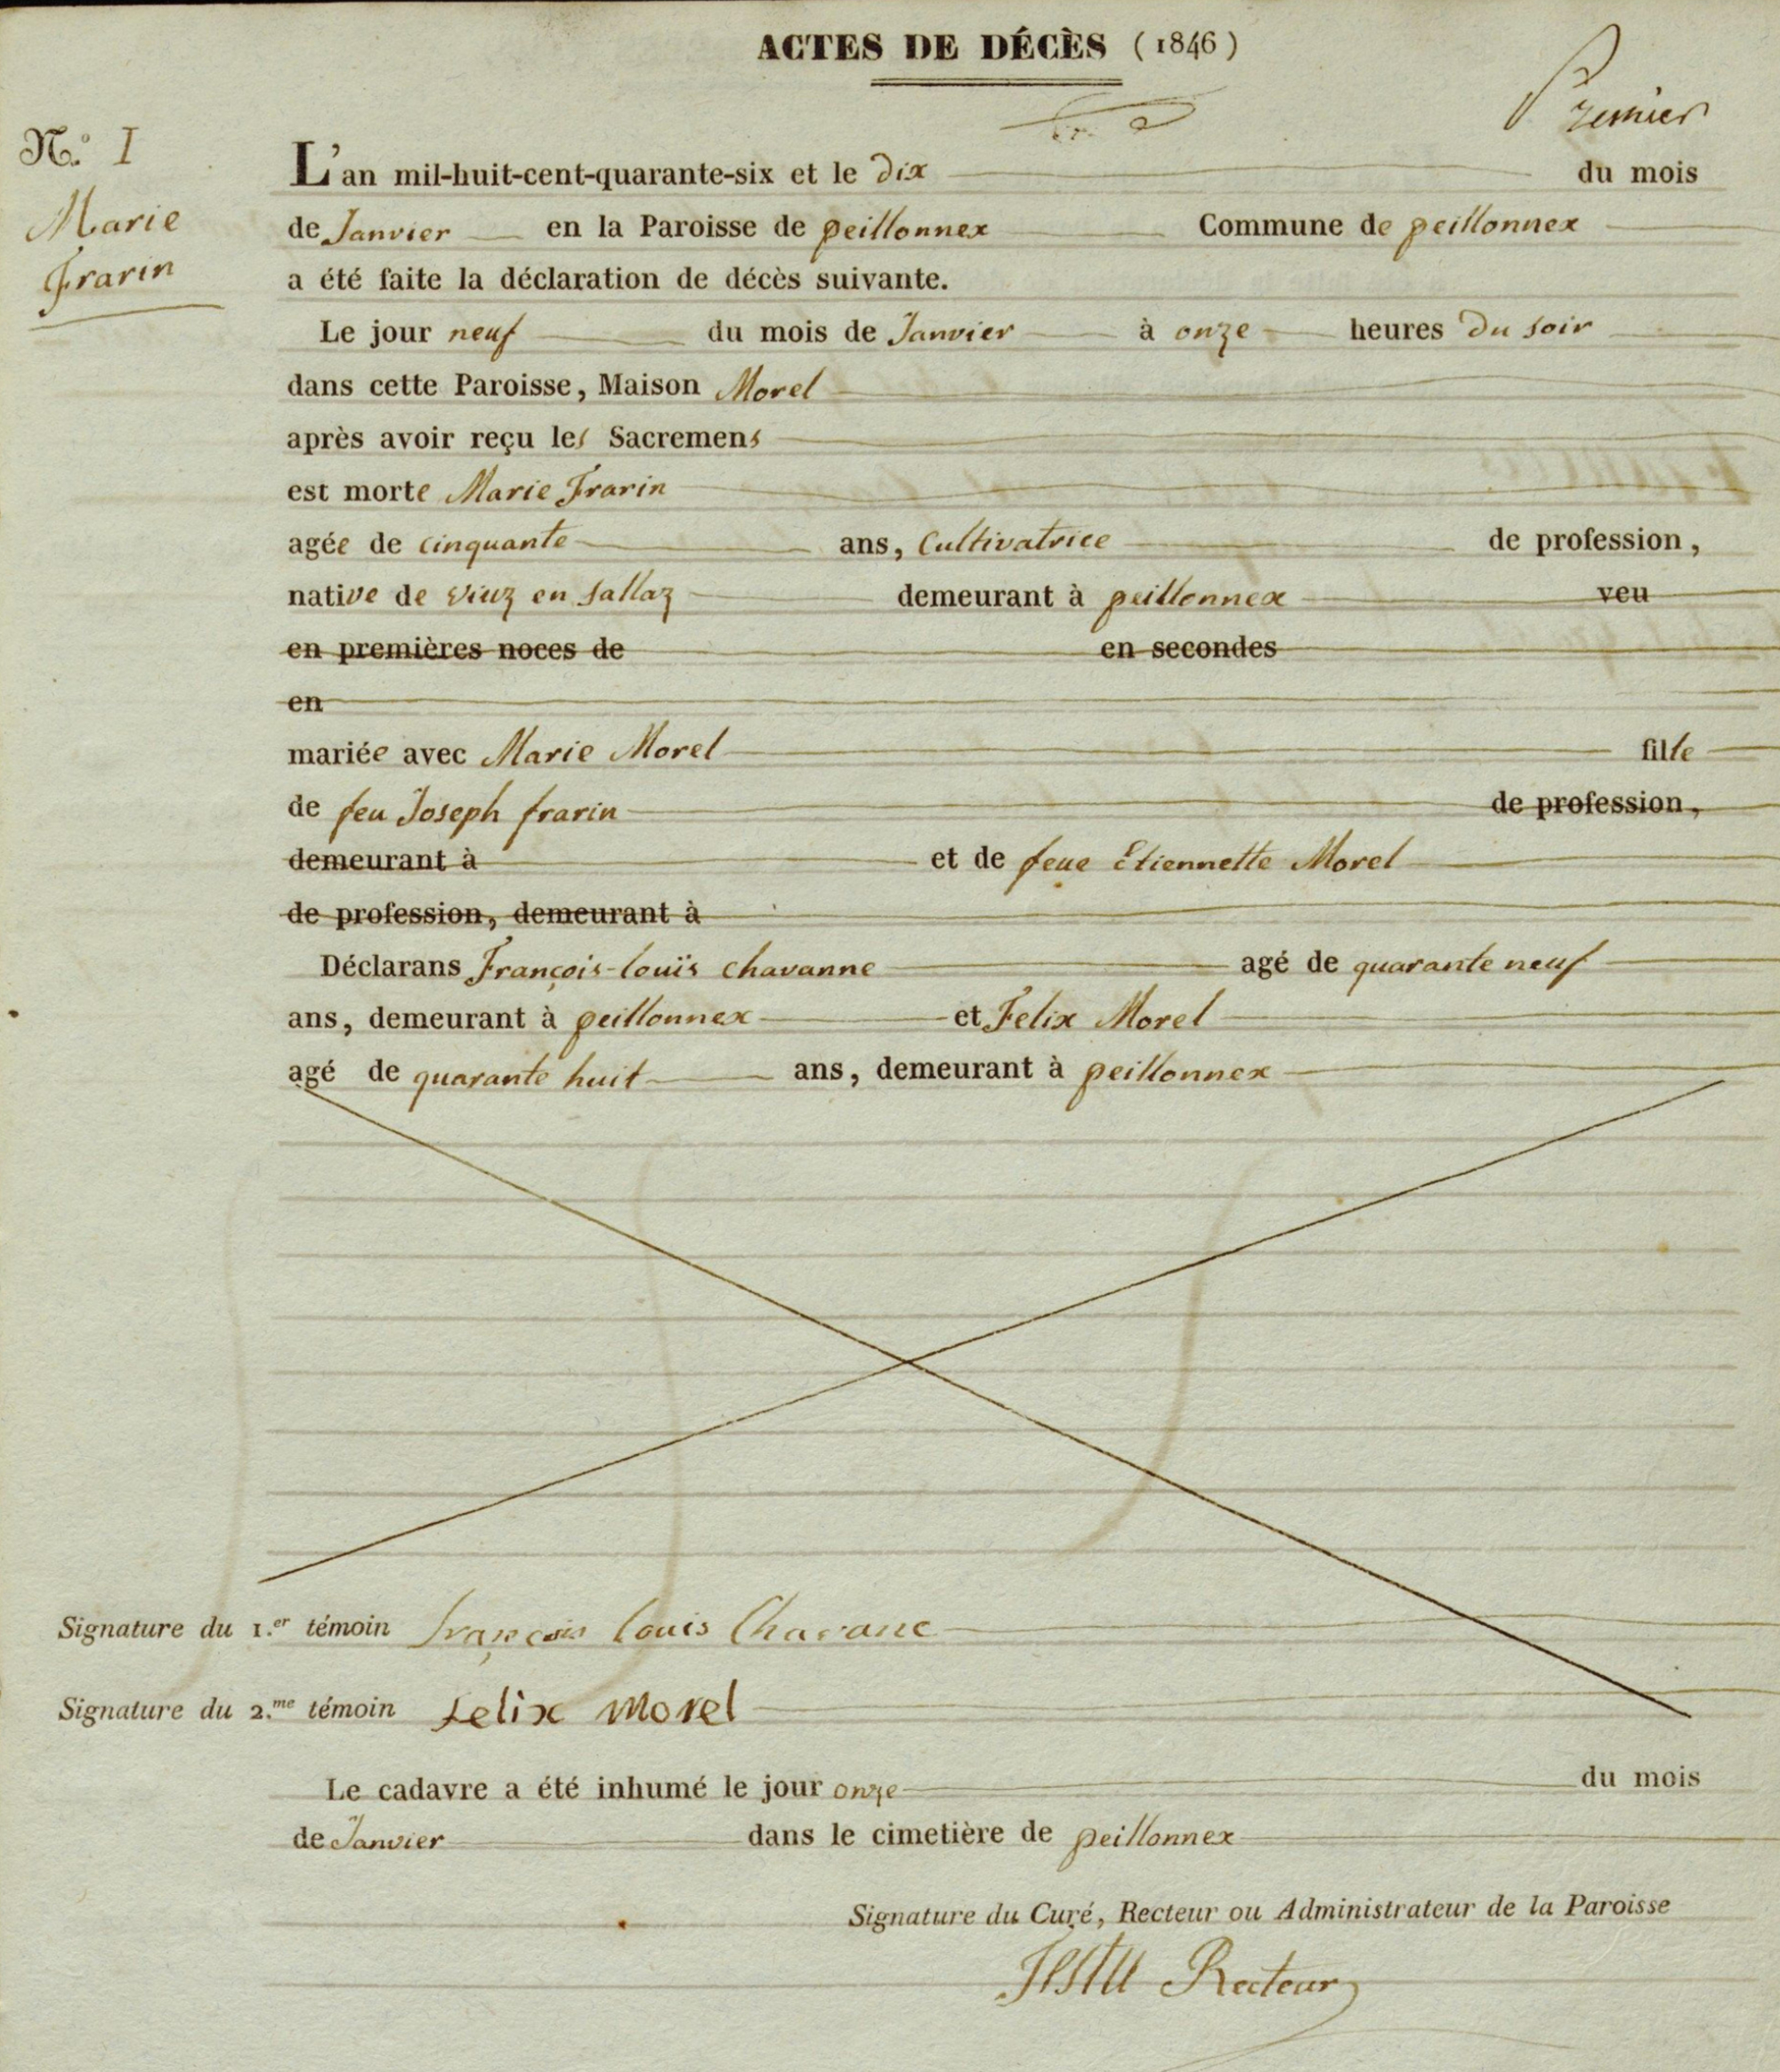 ACTES DE DÉCÈS (1846)
Premier
N.º I
Marie
Frarin
L'an mil-huit-cent-quarante-six et le dix du mois
de Janvier en la Paroisse de peillonnex Commune de peillonnex
a été faite la déclaration de décès suivante.
Le jour neuf du mois de Janvier à onze heures du soir
dans cette Paroisse, Maison Morel
après avoir reçu les Sacremens
est morte Marie Frarin
agée de cinquante ans, Cultivatrice de profession,
native de viuz en sallaz demeurant à peillonnex veu
en premières noces de en secondes
en
mariée avec Marie Morel fille
de feu Joseph frarin de profession,
demeurant à et de feue Etiennette Morel
de profession, demeurant à
Déclarans François-louïs chavanne agé de quarante neuf
ans, demeurant à peillonnex et Felix Morel
agé de quarante huit ans, demeurant à peillonnex
Signature du 1.er témoin françois louis Chavane
Signature du 2.me témoin felix morel
Le cadavre a été inhumé le jour onze du mois
de Janvier dans le cimetière de peillonnex
Signature du Curé, Recteur ou Administrateur de la Paroisse
Recteur